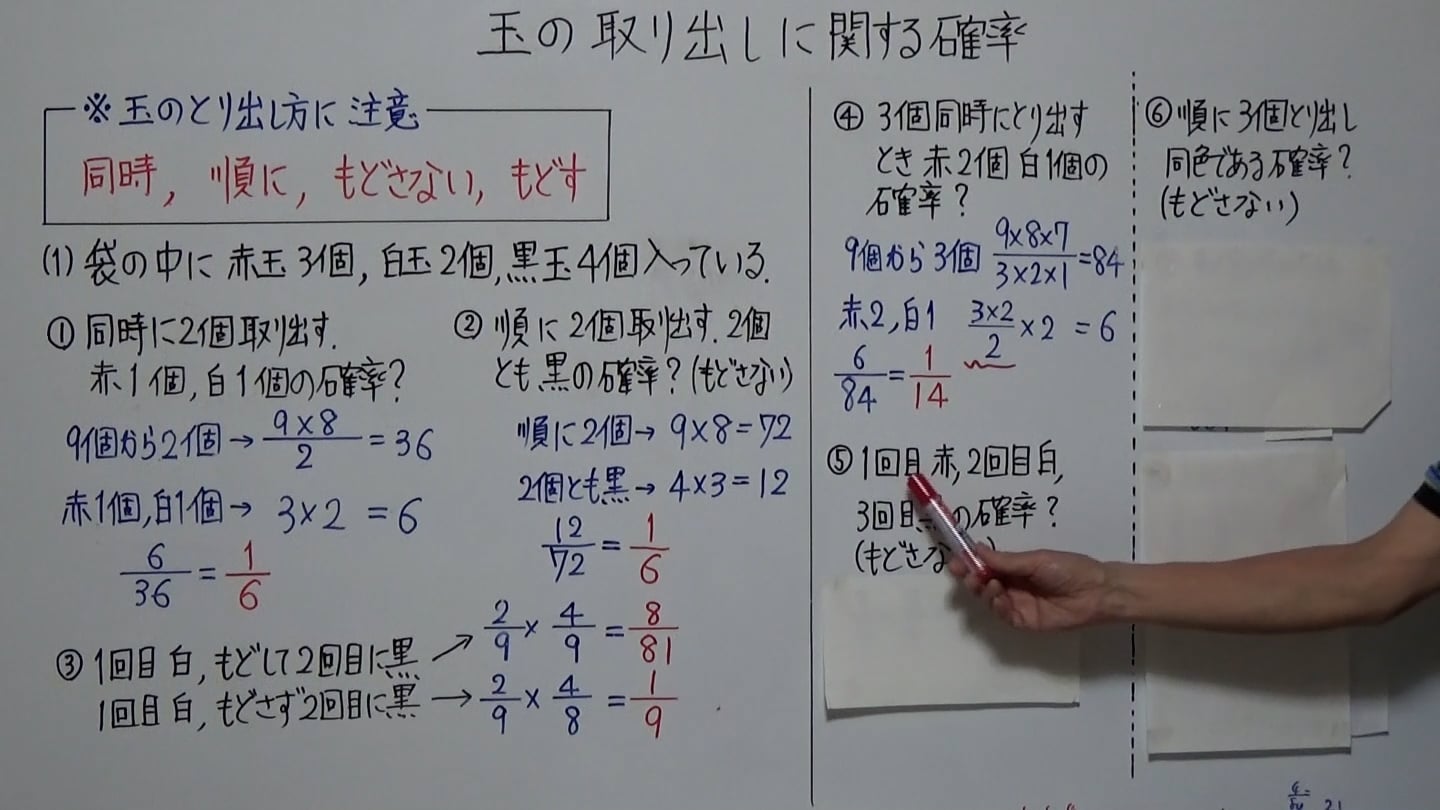 玉の取り出しに関する確率
※玉のとり出し方に注意
同時, 順に, もどさない, もどす
(1) 袋の中に赤玉3個, 白玉2個, 黒玉4個入っている.
① 同時に2個取出す.
赤1個, 白1個の確率?
9個から2個→ 9×8/2 = 36
赤1個, 白1個→ 3×2 = 6
6/36 = 1/6
② 順に2個取出す. 2個
とも黒の確率? (もどさない)
順に2個→ 9×8=72
2個とも黒→ 4×3=12
12/72 = 1/6
③ 1回目白, もどして2回目に黒 → 2/9 × 4/9 = 8/81
1回目白, もどさず2回目に黒 → 2/9 × 4/8 = 1/9
④ 3個同時にとり出す
とき赤2個白1個の
確率?
9個から3個 9×8×7/3×2×1 = 84
赤2, 白1 3×2/2 ×2 = 6
6/84 = 1/14
⑤ 1回目赤, 2回目白,
3回目の確率?
(もどさな
⑥ 順に3個とり出し
同色である確率?
(もどさない)